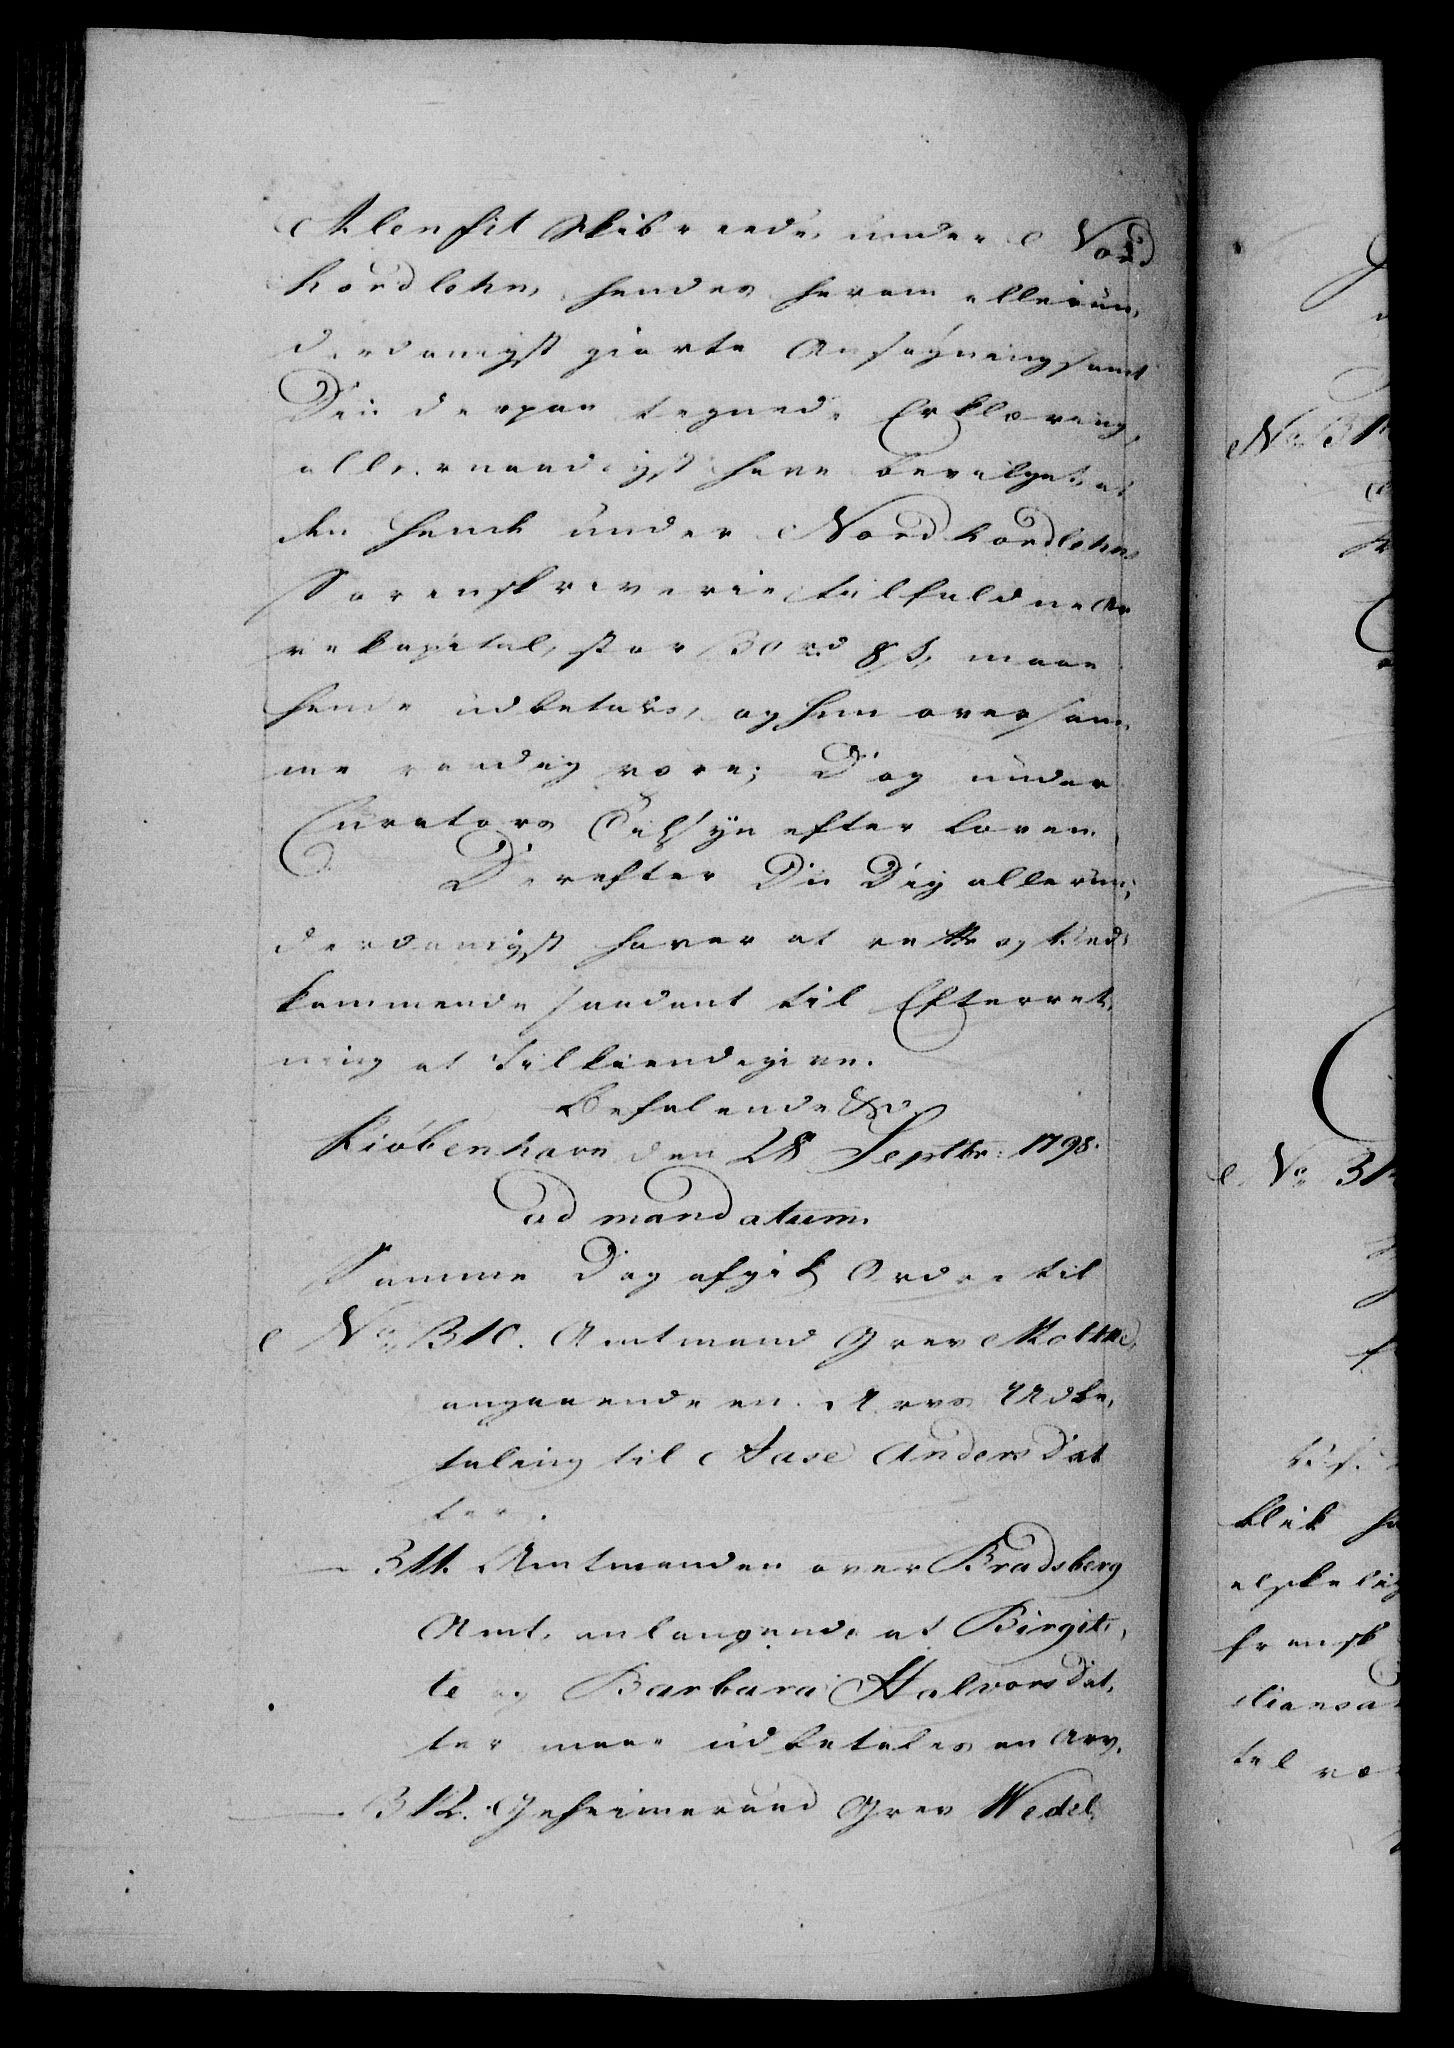 Alenfit Skibreede under Nord
hordlehn, hendes herom allerun,
derdanigst giorte Ansøgning samt
Din derpaa tegnede Erklæring,
allernaadigst have bevilget, at
den hende under Nordhordlehns
Sorenskriverie tilfaldne Ar
vekapital, stor 30 rd 8 s, maae
hende udbetales, og hun over sam,
me raadig være; Dog under
Curators Tilsyn efter Loven.
Derefter Du Dig allerun,
derdanigst haver at rette og Ved,
kommende saadant til Efterret,
ning at tilkiendegive.
Befalende
Kiøbenhavn den 28 Septbr: 1798.
ad mandatum.
Samme Dag afgik Ordre til
No 310. Amtmand Grev Moltke,
angaaende en Arvs Udbe,
taling til Aase Anders Dat
ter.
— 311. Amtmanden over Bradsberg
Amt, anlangende at Birgit,
te og Barbara Halvors Dat,
ter maae udbetales en Arv.
— 312. Geheimeraad Grev Wedel,
No 31
No 31
blik
elskelig
fransk